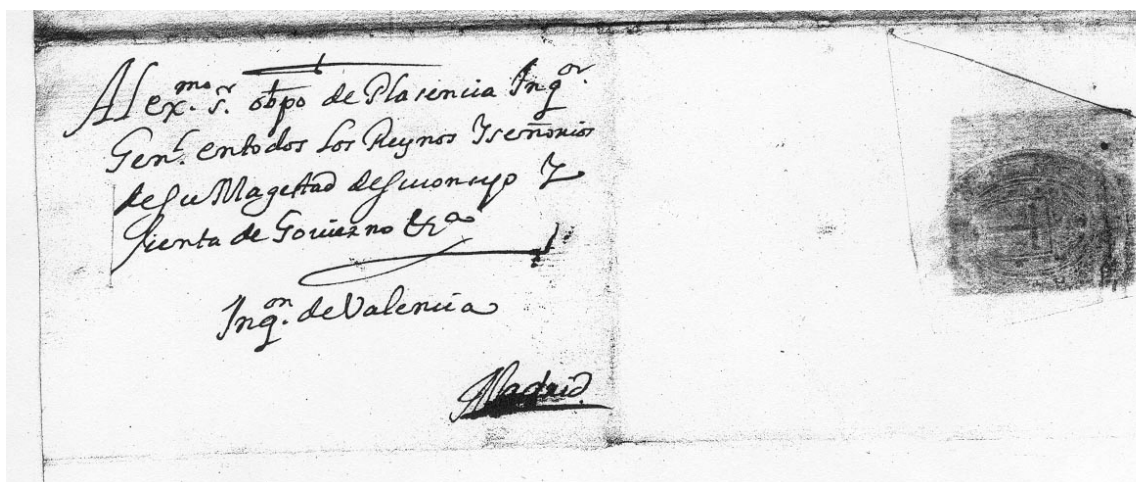 Al ex.mo s.r obpo de Plasencia Inq.or
Gen.l entodos Los Reynos Yseñorios
deSu Magestad deSuconsejo Y
Jienta de Govierno &c.a
Inq.on de Valencia
Madrid.